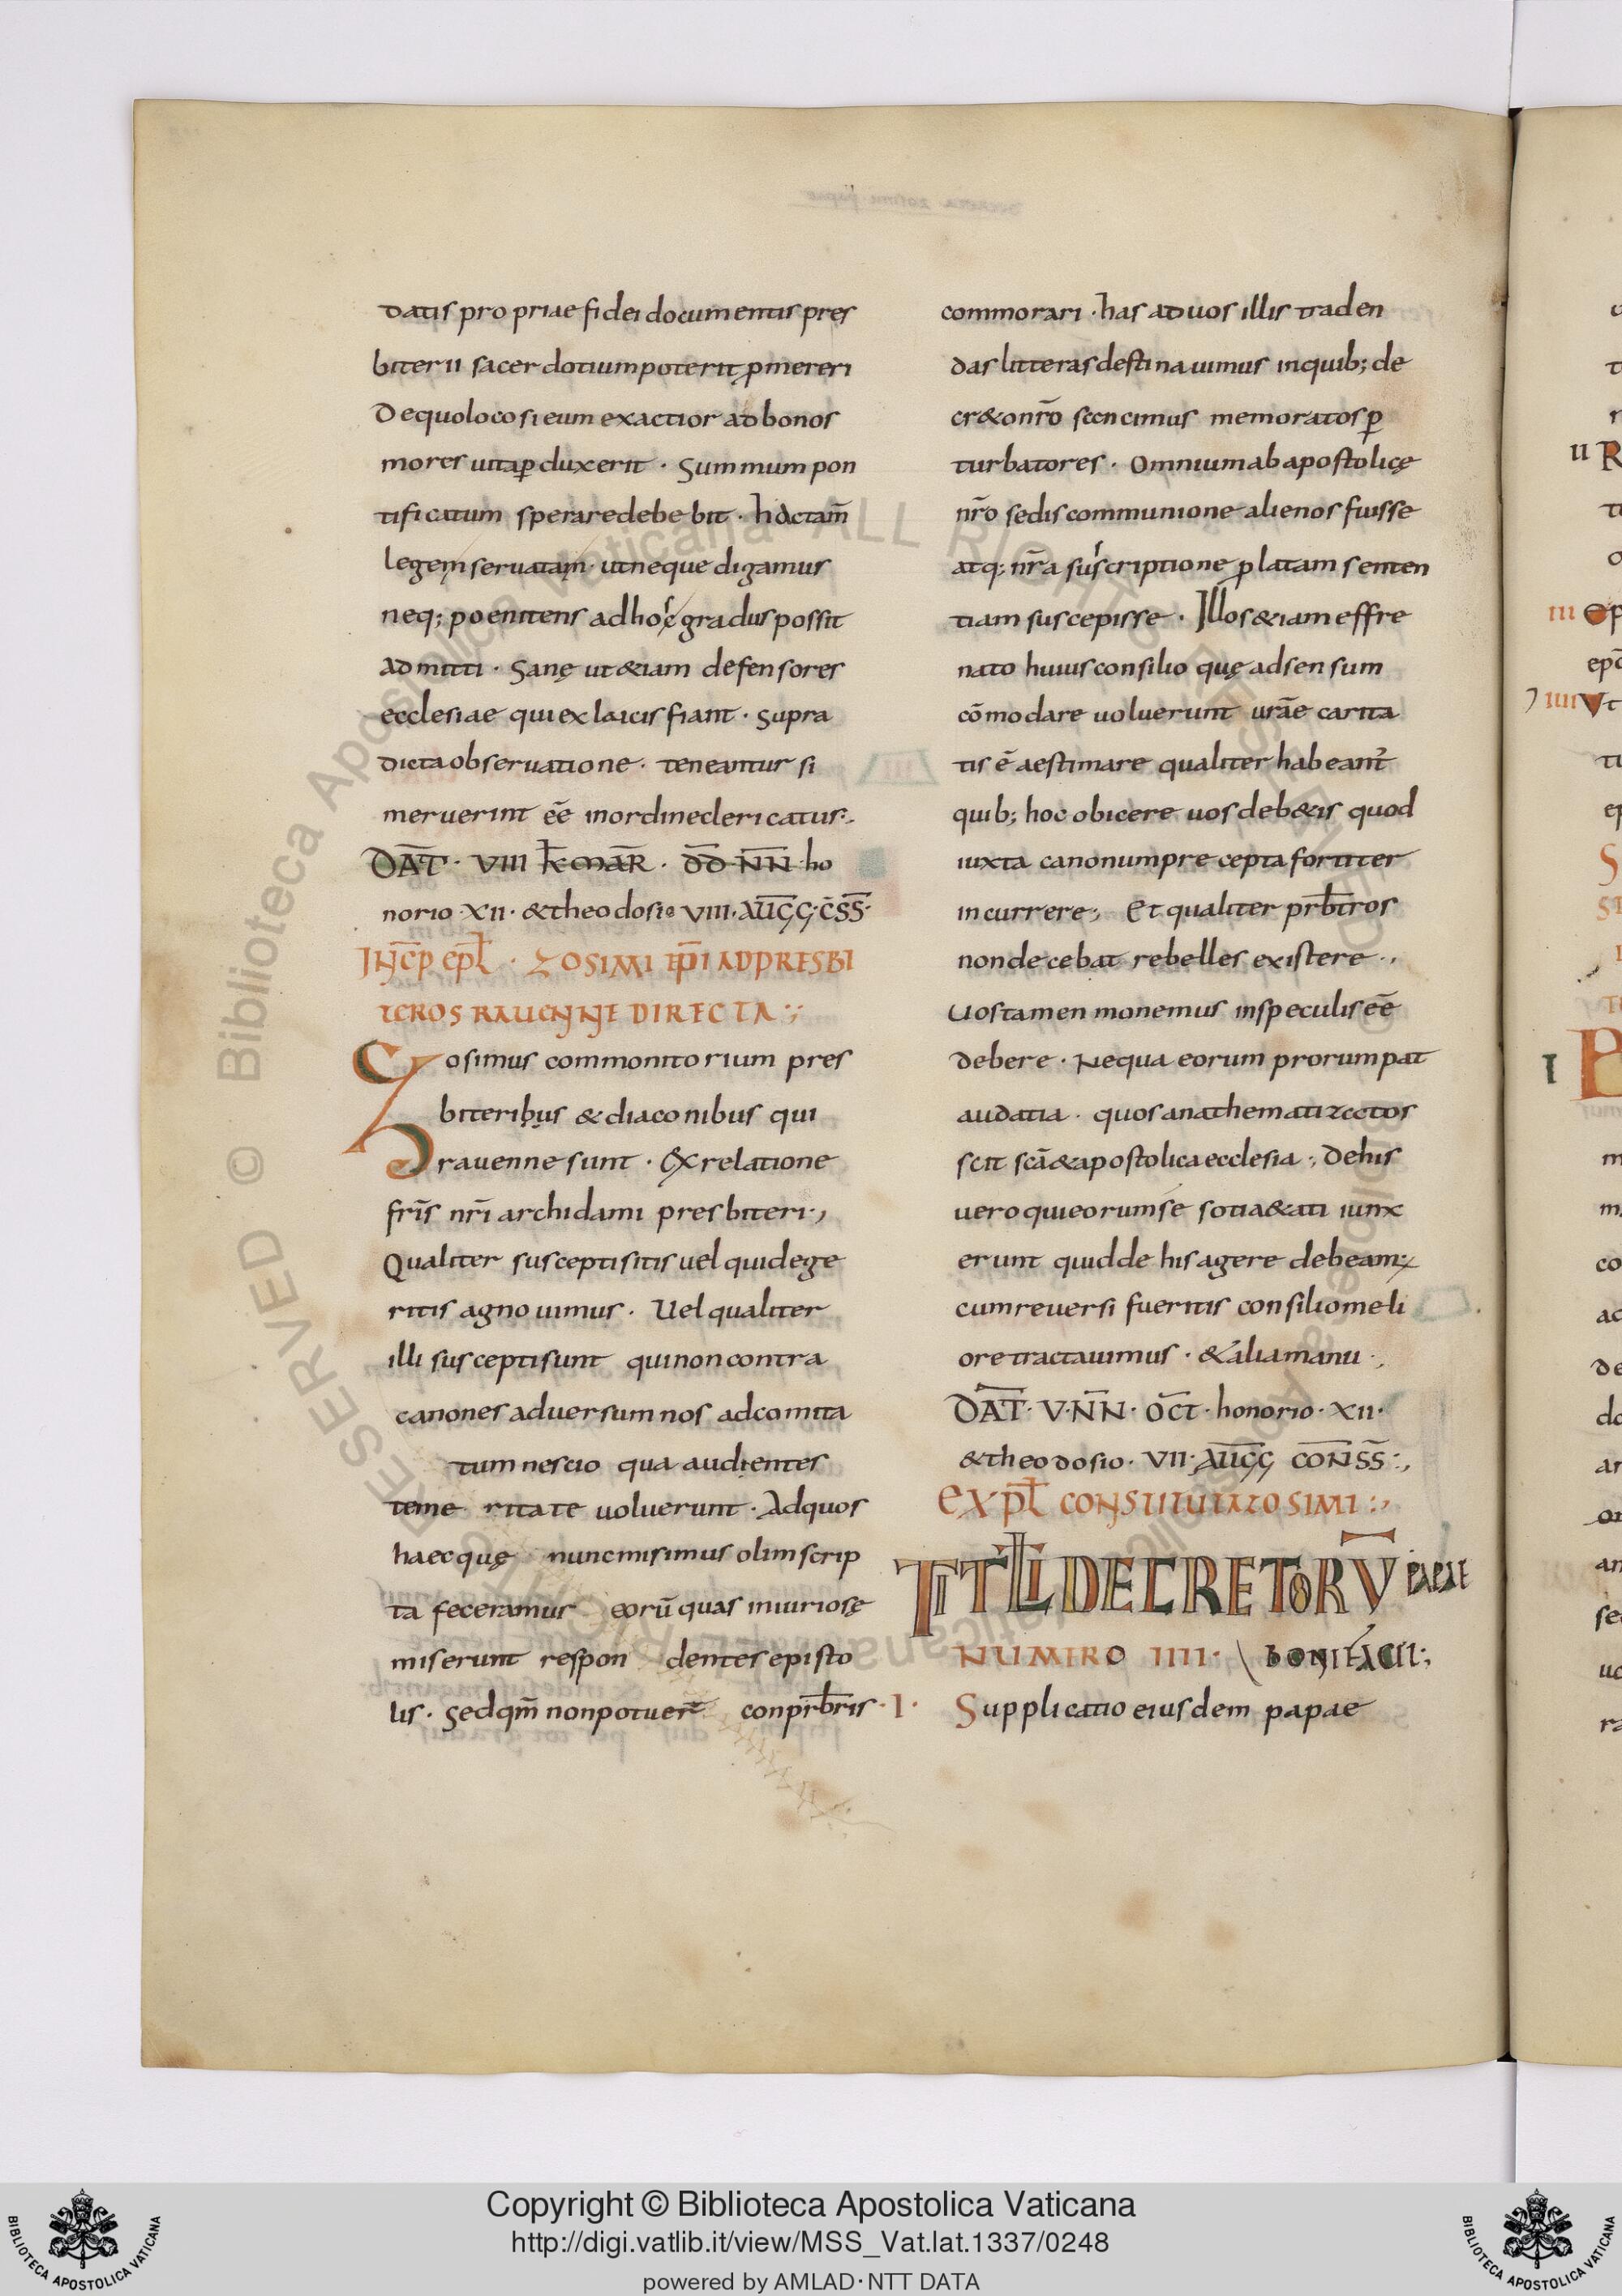 datis propriae fidei documentis pres
biterii sacerdotium poterit ꝓmereri
De quo loco si eum exactior ad bonos
mores uita ꝑduxerit · Summum pon
tificatum sperare debebit · Hac tam̅
legem seruatam · ut neque digamus
neq; poenitens ad hos gradus possit
admitti · Sanę ut &iam defensores
ecclesiae qui ex laicis fiant · supra
dicta obseruatione · teneantur si
meruerint ee̅ in ordine clericatus ·,
DAT̅ · VIII K̅ MAR̅ · DD̅ NN̅ · ho
norio · XII · & theodosio VIII · AUGG̅ · C̅SS̅ ·
INC̅P EPL̅ · ZOSIMI EP̅I AD PRESBI
TEROS RAVENNE DIRECTA :,
Zosimus commonitorium pres
biteribus & diaconibus qui
rauenne sunt · Ex relatione
fri̅s nri̅ archidami presbiteri ·,
Qualiter suscepti sitis uel quid ege
ritis agnouimus · Uel qualiter
illi suscepti sunt qui non contra
canones aduersum nos ad comita
tum nescio qua audientes
temeritate uoluerunt · Ad quos
haec quę nunc misimus olim scrip
ta feceramus eoru̅ quas iniuriosę
miserunt respondentes episto
lis · Sed qm̅ non potuer̅ con prb̅ris
commorari · has ad uos illis traden
das litteras destinauimus in quib; de
cr&o nro̅ scencimus memoratos ꝑ
turbatores · Omnium ab apostolicę
nr̅o sedis communione alienos fuisse
atq; nr̅a suscriptione ꝓlatam senten
tiam suscepisse · Illos &iam effre
nato huius consilio quę adsensum
co̅modare uoluerunt ura̅e carita
tis e̅ aestimare qualiter habeant̅
quib; hoc obicere uos deb&is quod
iuxta canonum precepta fortiter
incurrere ; Et qualiter prb̅tros
non decebat rebelles existere ·,
Uos tamen monemus in speculis ee̅
debere · Ne qua eorum prorumpat
audatia · quos anathematizatos
scit sca̅ & apostolica ecclesia ·, De his
uero qui eorum se sotia&ati iunx
erunt quid de his agere debeam;
cum reuersi fueritis consilio meli
ore tractauimus · & alia manu ·,
DAT̅ · V · NN̅ · OC̅T · honorio · XII ·
& theodosio · VII · AUGG̅ CONSS̅ ·,
EXPL̅ CONSTITUTA ZOSIMI :,
TITL̅I DECRETORV̅ PAPAE
NUMERO IIII · BONIFACII ·,
· I · Supplicatio eiusdem papae
Copyright © Biblioteca Apostolica Vaticana
http://digi.vatlib.it/view/MSS_Vat.lat.1337/0248
powered by AMLAD·NTT DATA